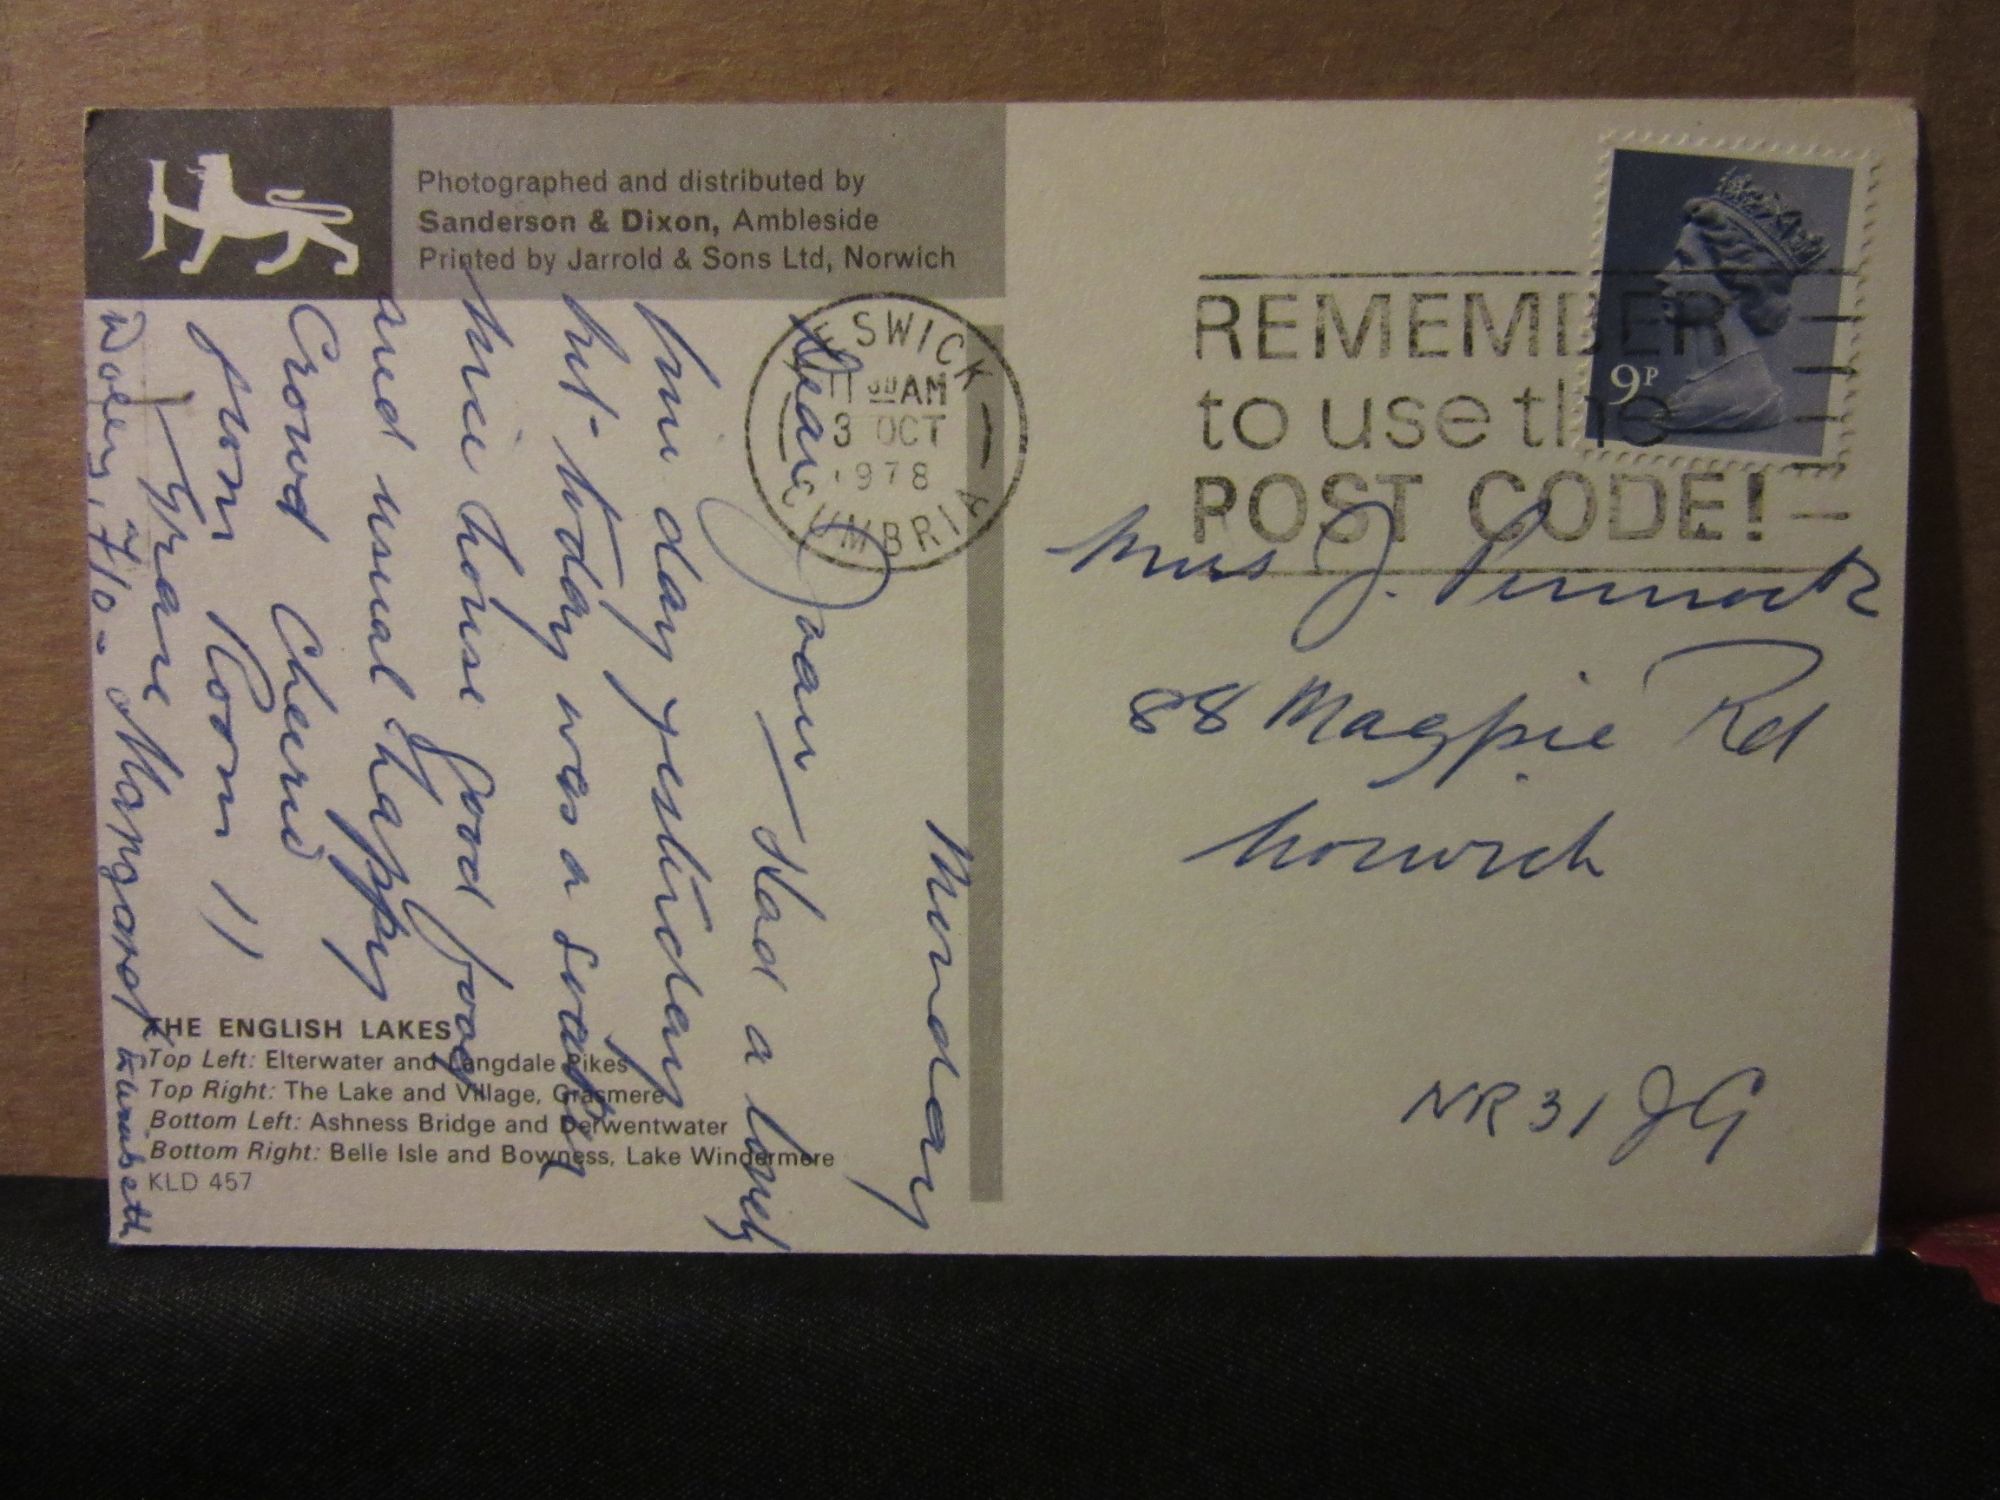 Photographed and distributed by
Sanderson & Dixon, Ambleside
Printed by Jarrold & Sons Ltd, Norwich
Monday
Dear Joan Had a lovely
fine day yesterday
but today was a soaker
nice house good food
and usual happy
Crowd Cheerio
from Room 11
Grace
Dolly, Flo - Margaret
THE ENGLISH LAKES
Top Left: Elterwater and Langdale Pikes
Top Right: The Lake and Village, Grasmere
Bottom Left: Ashness Bridge and Derwentwater
Bottom Right: Belle Isle and Bowness, Lake Windermere
KLD 457
KESWICK
11 30 AM
3 OCT
1978
CUMBRIA
REMEMBER
to use the
POST CODE!
9P
Mrs J. Pinnock
88 Magpie Rd
Norwich
NR3 1JG